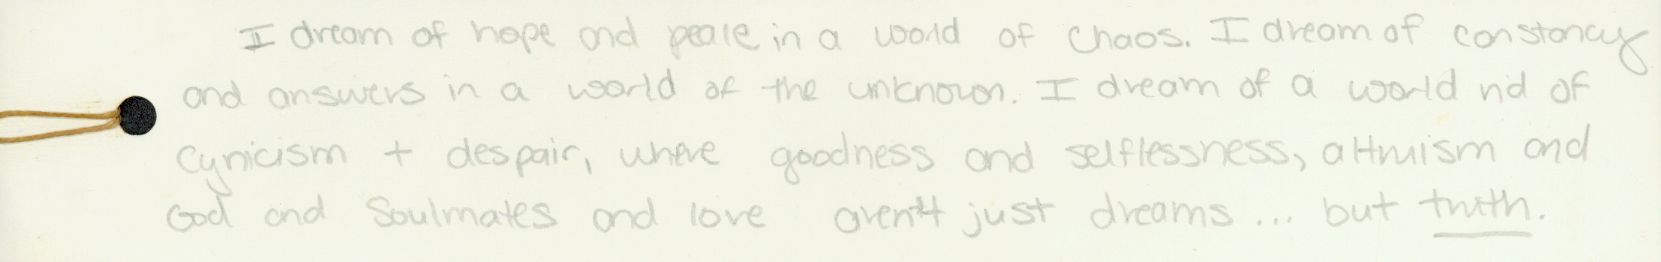 I dream of hope and peace in a world of chaos. I dream of constancy
and answers in a world of the unknown. I dream of a world rid of
cynicism + despair, where goodness and selflessness, altruism and
God and Soulmates and love aren't just dreams... but truth.